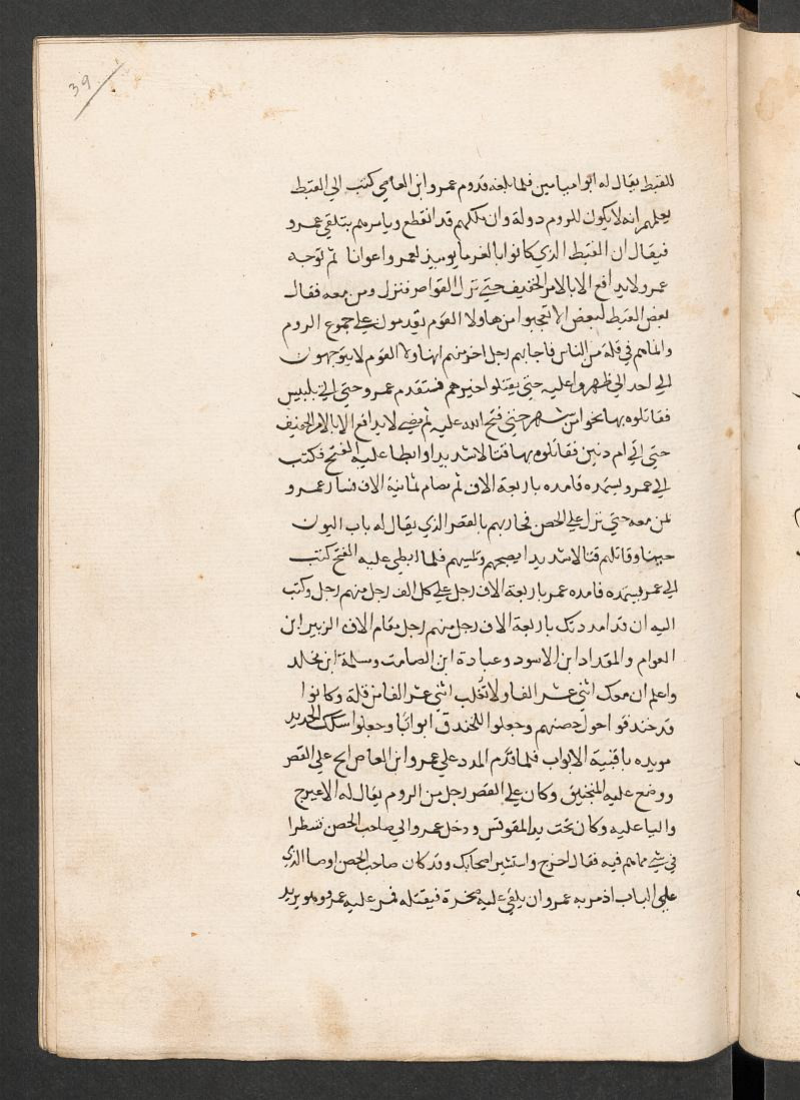 39
للقبط يقال له ابوا ميامين فلما بلغه قدوم عمرو ابن العاصي كتب الي القبط
يعلمهم انه لا يكون للروم دولة وان ملكهم قد انقطع ويامرهم بتلقي عمرو
فيقال ان القبط الذي كانوا بالفرما يوميذ لعمرو اعوانا ثم توجه
عمرو لا يدافع الا بالامر الخفيف حتي نزل القواصر فنزل ومن معه فقال
بعض القبط لبعض الا تعجبوا من هاولا القوم يقدمون علي جموع الروم
وانما هم في قلة من الناس فاجابهم رجل اخر منهم ان هاولا القوم لا يتوجهون
الي احد الي ظهروا عليه حتي يقتلوا اخيرهم فتقدم عمرو حتي اتي بلبيس
فقاتلوه بها نحوا من شهر حتي فتح الله عليه ثم مضي لا يدافع الا بالامر الخفيف
حتي اتي ام دنين فقاتلوه بها قتالا شديدا وابطا عليه الفتح فكتب
الي عمر ويستمده فامده باربعة الاف ثم تمام ثمانية الاف فسار عمرو
بمن معه حتي نزل علي الحصن فحاربهم بالقصر الذي يقال له باب اليون
حينا وقاتلهم قتالا شديدا يصبحهم ويمسيهم فلما ابطي عليه الفتح كتب
الي عمر يستمده فامده عمر باربعة الاف رجل علي كل الف رجل منهم رجل وكتب
اليه ان قد امددتك باربعة الاف رجل منهم رجل مقام الاف الزبير ابن
العوام والمقداد ابن الاسود وعبادة ابن الصامت وسلمة ابن مخلد
واعلم ان معك اثني عشر الفا ولا تغلب اثني عشر الفا من قلة وكانوا
قد خندقوا حول حصنهم وجعلوا للخندق ابوابا وجعلوا سكك الحديد
موبده باقنية الابواب فلما قدم المدد علي عمرو ابن العاص الح علي القصر
ووضع عليه المنجنيق وكان علي القصر رجل من الروم يقال له الاعيرج
واليا عليه وكان تحت يد المقوقس ودخل عمرو الي صاحب الحصن فنظرا
في شي مما هم فيه فقال اخرج واستشير اصحابك وقد كان صاحب الحصن اوصا الذي
علي الباب اذ مر به عمرو ان يلقي عليه صخرة فيقتله فمر عليه عمرو وهو يريد